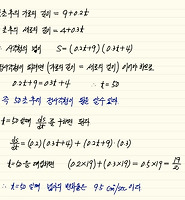 초후의 가로의 길이 = 9+0.2t
초후의 세로의 길이 = 4+0.3t
∴ 사각형의 넓이 S = (0.2t+9)(0.3t+4)
정사각형이 되려면 (가로의 길이 = 세로의 길이) 이어야 하므로,
0.2t+9 = 0.3t+4 ∴ t=50
즉 50초후에 정사각형이 됨을 알수 있다.
t=50 일때 ds/dt 를 구하면 된다
ds/dt = (0.2)(0.3t+4) + (0.2t+9)·(0.3)
t=50을 대입하면 (0.2×19)+(0.3×19) = 0.5×19 = 19/2
∴ t=50 일때 넓이의 변화율은 9.5 cm²/sec 이다.